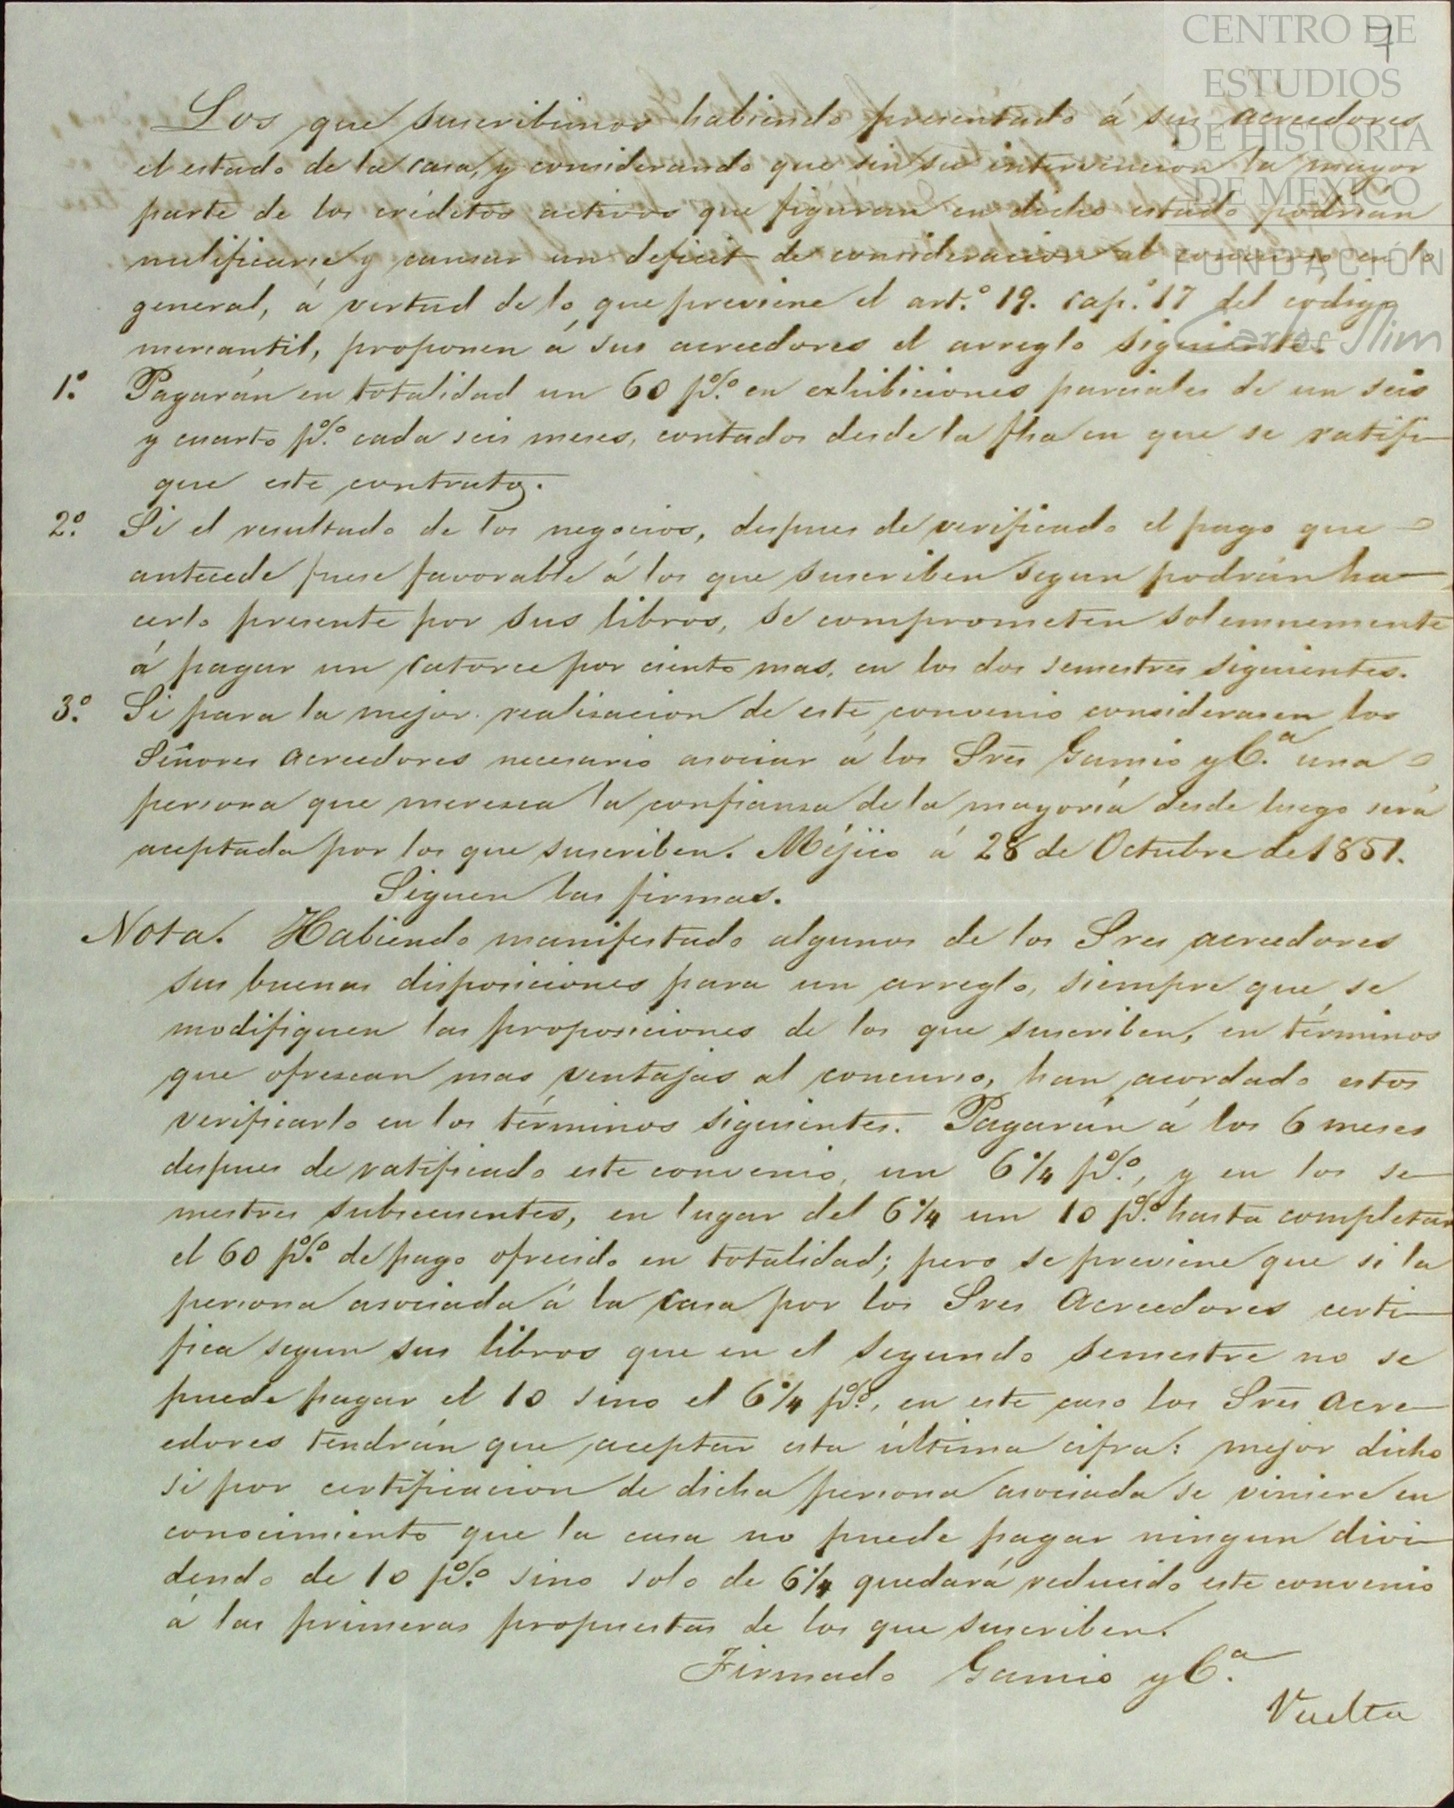 CENTRO DE
ESTUDIOS
DE HISTORIA
DE MEXICO
FUNDACIÓN
Carlos Slim
7
Los que suscribimos habiendo presentado á sus acreedores
el estado de la casa, y considerando que sin su intervencion la mayor
parte de los créditos activos que figuran en dicho estado podrian
nulificarse y causar un deficit de consideracion al concurso en lo
general, á virtud de lo que previene el art.º 19. cap.º 17 del código
mercantil, proponen á sus acreedores el arreglo siguiente.
1.º Pagarán en totalidad un 60 p%. en exhibiciones parciales de un seis
y cuarto p%. cada seis meses, contados desde la fha en que se ratifi-
que este contrato.
2.º Si el resultado de los negocios, despues de verificado el pago que
antecede fuese favorable á los que suscriben segun podrán ha-
cerlo presente por sus libros, se comprometen solemnemente
á pagar un catorce por ciento mas, en los dos semestres siguientes.
3.º Si para la mejor realizacion de este convenio considerasen los
Señores acreedores necesario asociar á los Sres Gamio y C.ª una
persona que merezca la confianza de la mayoría desde luego será
aceptada por los que suscriben. Méjico á 28 de Octubre de 1851.
Siguen las firmas.
Nota. Habiendo manifestado algunos de los Sres acreedores
sus buenas disposiciones para un arreglo, siempre que se
modifiquen las proposiciones de los que suscriben, en términos
que ofrezcan mas ventajas al concurso, han acordado estos
verificarlo en los términos siguientes. Pagarán á los 6 meses
despues de ratificado este convenio, un 6¼ p%., y en los se-
mestres subsecuentes, en lugar del 6¼ un 10 p%. hasta completar
el 60 p%. de pago ofrecido en totalidad; pero se previene que si la
persona asociada á la casa por los Sres Acreedores certi-
fica segun sus libros que en el segundo semestre no se
puede pagar el 10 sino el 6¼ p%., en este caso los Sres Acre-
edores tendrán que aceptar esta última cifra: mejor dicho
si por certificacion de dicha persona asociada se viniere en
conocimiento que la casa no puede pagar ningun divi-
dendo de 10 p%. sino solo de 6¼ quedará reducido este convenio
á las primeras propuestas de los que suscriben.
Firmado Gamio y C.ª
Vuelta